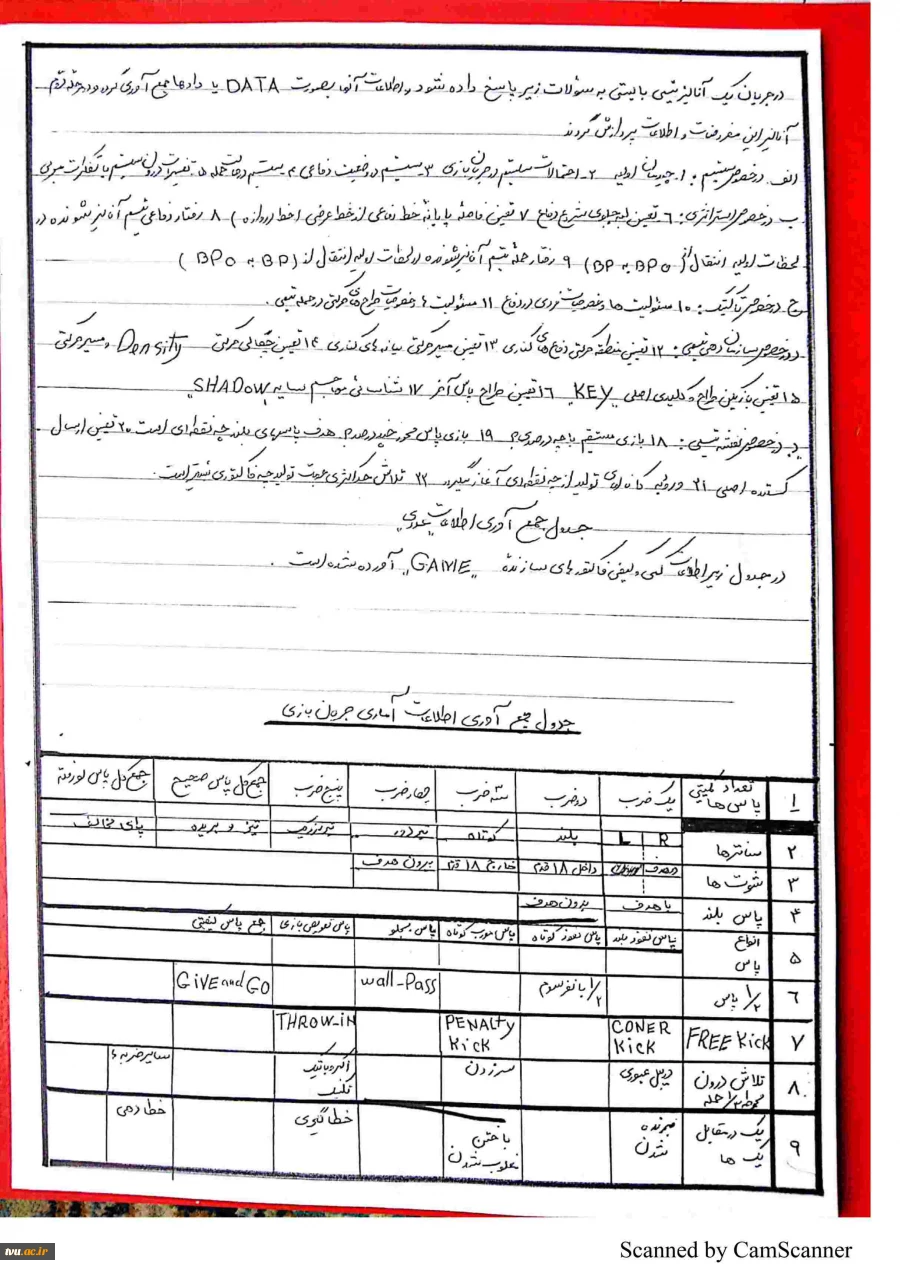 در جریان یک آنالیز تیمی بایستی به سئولات زیر پاسخ داده شود و اطلاعات آنها بصورت DATA یا دادها جمع آوری کرده و در مرحله دوم
آنالیز این مفروضات و اطلاعات پردازش گردند
الف در خصوص سیستم : ۱ چیدمان اولیه ۲ - احتمالات سیستم در جریان بازی ۳ سیستم در وضعیت دفاعی ۴ سیستم در حالت حمله ۵ تغییرات درون سیستم با تفکرات مربی
ب در خصوص استراتژی : ۶ تعیین لبه جلوی شروع دفاع ۷ تعیین فاصله پایانه خط دفاعی از خط عرضی (خط دروازه) ۸ رفتار دفاعی تیم آنالیز شونده در
لحظات اولیه انتقال از (BPO به BP) ۹ رفتار حمله تیم آنالیز شونده در لحظات اولیه انتقال از (BP به BPO)
ج در خصوص تاکتیک : ۱۰ مسئولیت ها و خصوصیات فردی در دفاع ۱۱ مسئولیت و خصوصیات طرح های حرکتی در حمله تیمی .
د در خصوص سازمان دهی تیمی : ۱۲ تعیین منطقه حرکتی دفاع های کناری ۱۳ تعیین مسیر حرکتی میانه های کناری ۱۴ تعیین چگالی حرکتی Density و مسیر حرکتی
۱۵ تعیین بازیکن طراح و کلیدی اصلی "KEY" ۱۶ تعیین طراح پاس آخر ۱۷ شناسائی مهاجم سایه "SHADOW"
در خصوص نقشه تیمی : ۱۸ بازی مستقیم با چه درصدی ؟ ۱۹ بازی پاس محور چند درصد ؟ هدف پاسهای بلند چه نقطه ای است ۲۰ تعیین ارسال
کننده اصلی ۲۱ ورودیه کانالهای تولید از چه نقطه ای آغاز میگیرد ۲۲ تلاش حداکثری جهت تولید چه فاکتوری بیشتر است .
جدول جمع آوری اطلاعات عددی
در جدول زیر اطلاعات کمی و کیفی فاکتورهای سازنده "GAME" آورده شده است .
جدول جمع آوری اطلاعات آماری جریان بازی
۱ تعداد کمیتی پاس ها یک ضرب دو ضرب سه ضرب چهار ضرب پنج ضرب جمع کل پاس صحیح جمع کل پاس لورفته
۲ سانترها R L بلند کوتاه تیر دور تیر نزدیک تیز و بریده پای مخالف
۳ شوت ها داخل ۱۸ قدم خارج ۱۸ قدم بیرون هدف
۴ پاس بلند با هدف بدون هدف
۵ انواع پاس پاس نفوذ بلند پاس نفوذ کوتاه پاس مورب کوتاه پاس بجلو پاس تعویض بازی جمع پاس کیفیتی
۶ ۱/۲ پاس ۱/۲ با نفر سوم wall-Pass GiVE and GO
۷ FREE Kick CONER Kick PENALty Kick THROW-iN
۸ تلاش درون محوطه حمله دریبل عبوری سر زدن آکروباتیک تکنیک سایر ضربه
۹ یک در مقابل یک ها برنده شدن باختن مغلوب شدن خطا گیری خطا دهی
tvu.ac.ir
Scanned by CamScanner